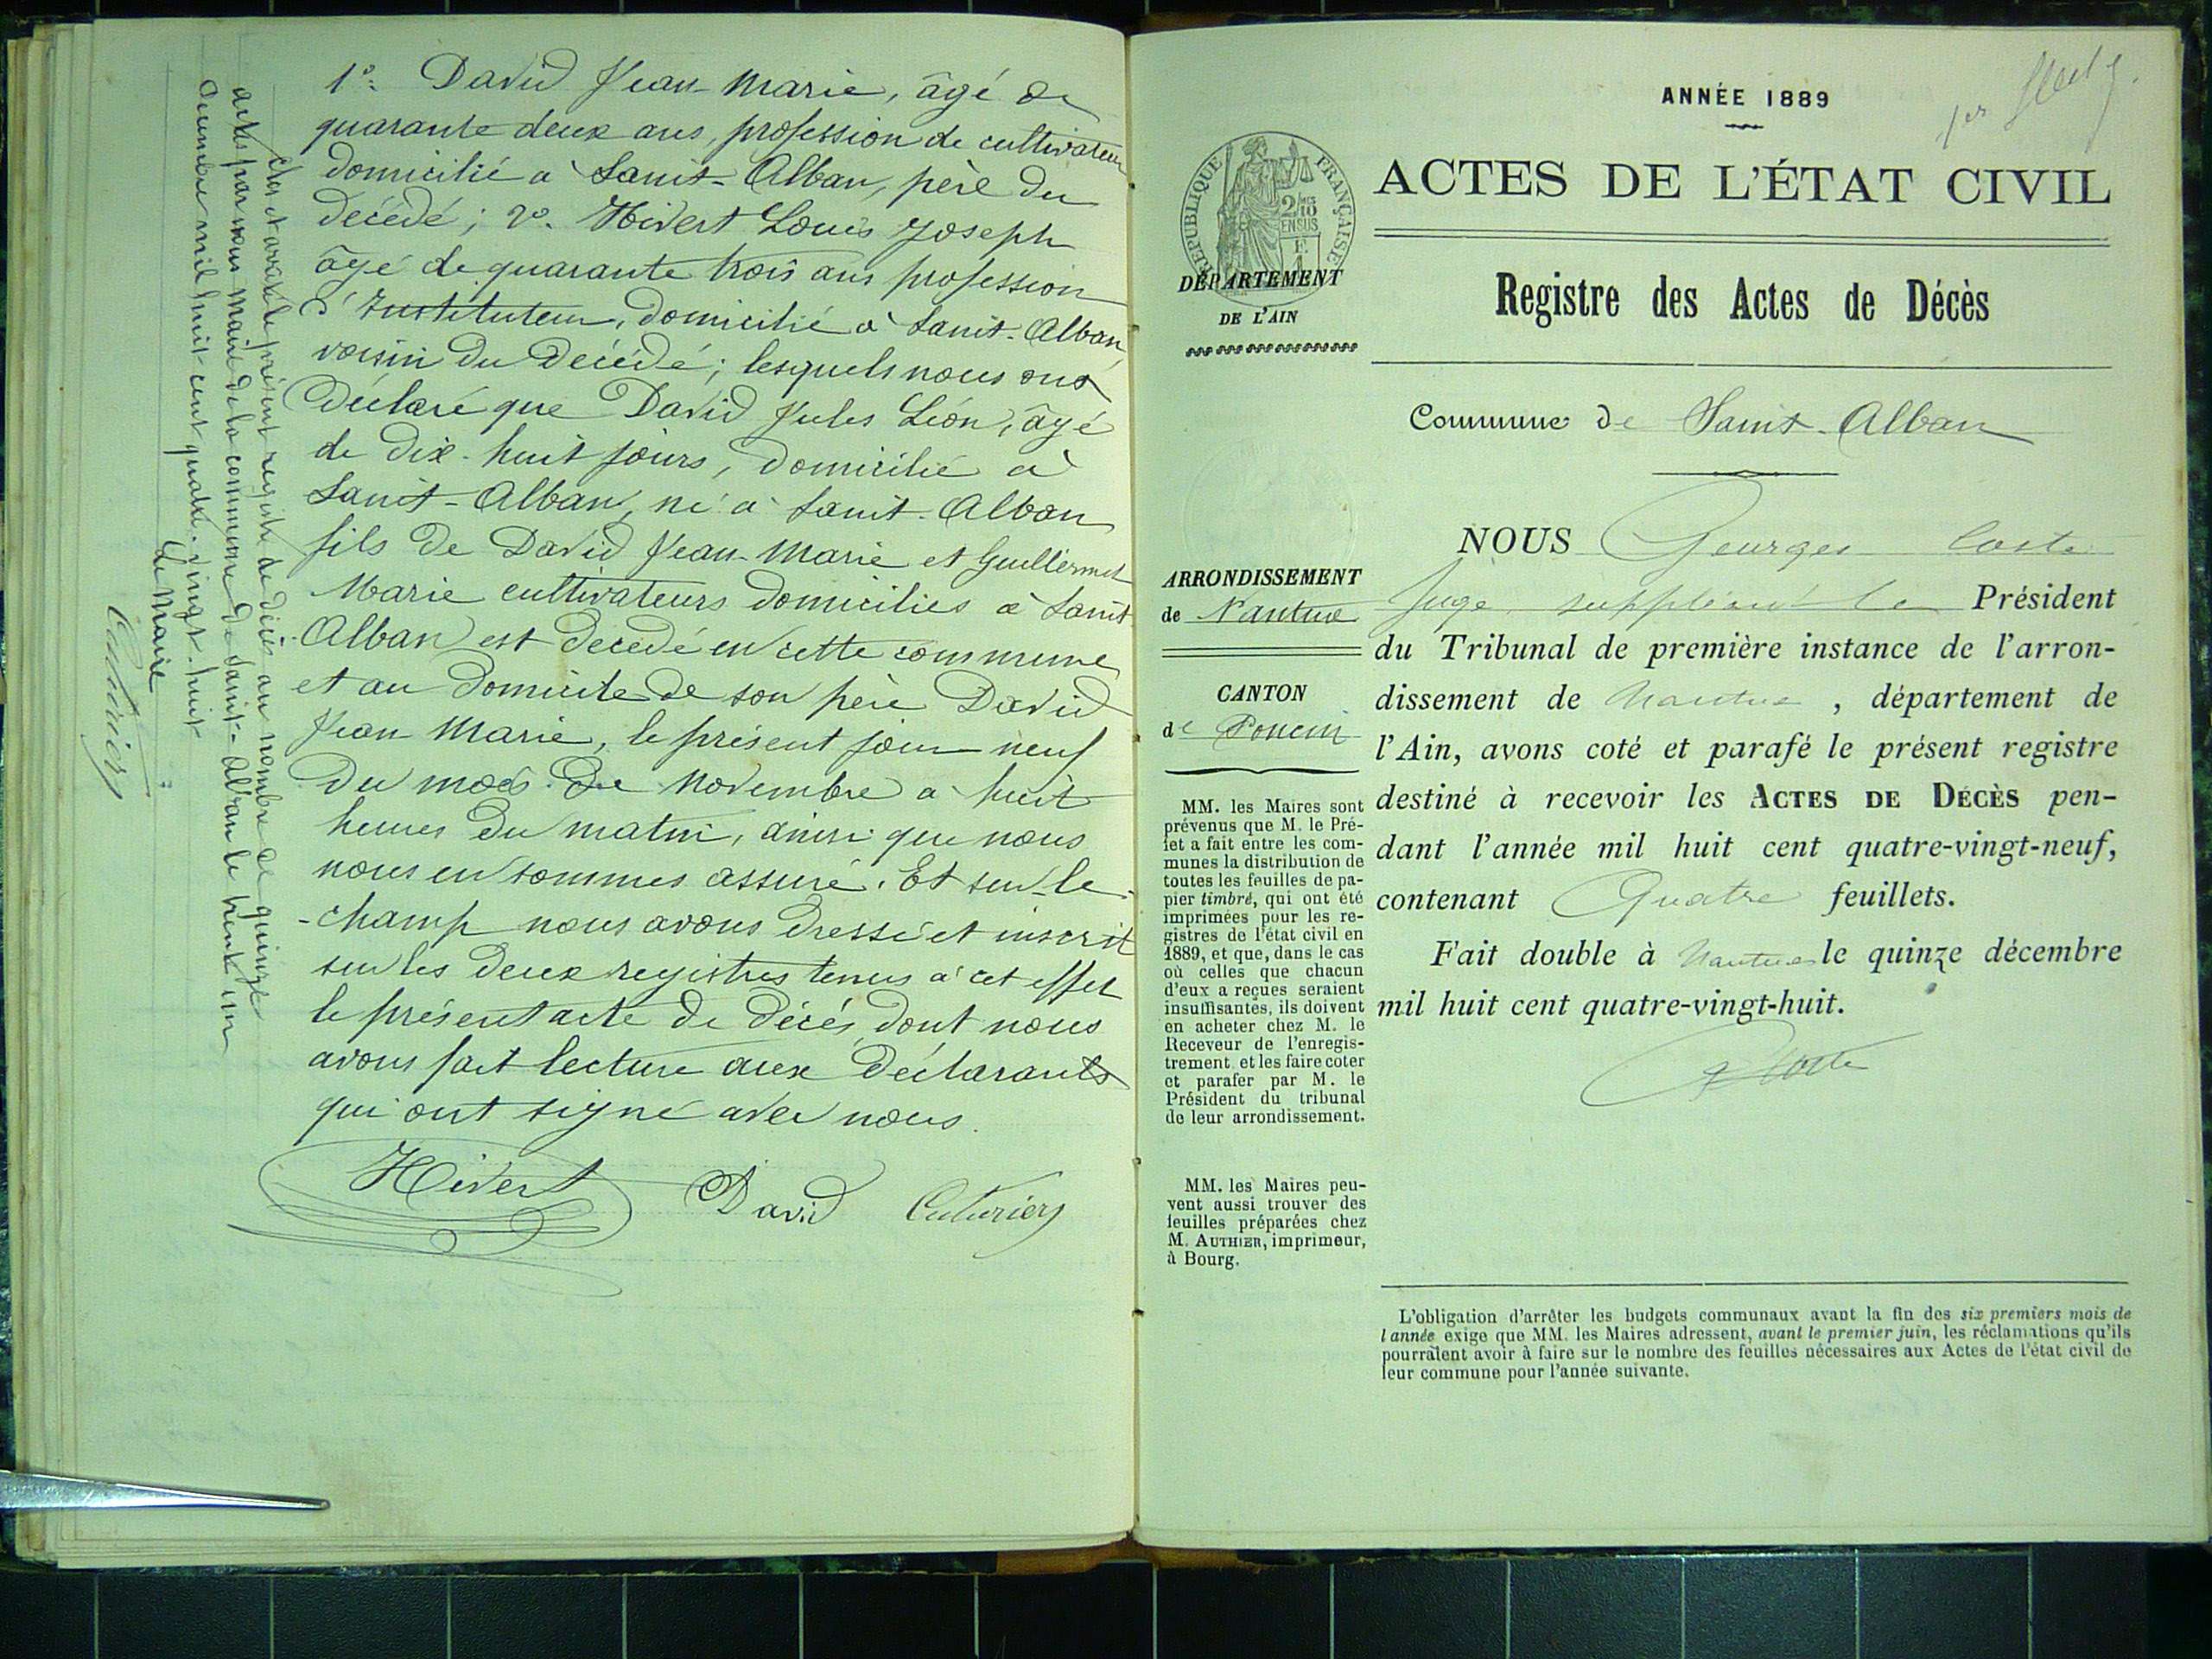 1º. David Jean-Marie, âgé de
quarante deux ans, profession de cultivateur
domicilié à Saint-Alban, père du
décédé; 2º. Hivert Louis Joseph
âgé de quarante trois ans profession
d'Instituteur, domicilié à Saint-Alban
voisin du décédé; lesquels nous ont
déclaré que David Jules Léon, âgé
de dix-huit jours, domicilié à
Saint-Alban, né à Saint-Alban
fils de David Jean-Marie et Guillermet
Marie cultivateurs domiciliés à Saint
Alban est décédé en cette commune
et au domicile de son père David
Jean Marie, le présent jour neuf
du mois de Novembre à huit
heures du matin, ainsi que nous
nous en sommes assuré. Et sur-le-
-champ nous avons dressé et inscrit
sur les deux registres tenus à cet effet
le présent acte de décès, dont nous
avons fait lecture aux déclarants
qui ont signé avec nous.
Hivert David
Clos et arrêté le présent registre de décès au nombre de quinze
actes par nous Maire de la commune de Saint-Alban le trente un
décembre mil huit-cent quatre-vingt-huit
Le Maire
1er
ANNÉE 1889
ACTES DE L'ÉTAT CIVIL
Registre des Actes de Décès
Commune de Saint-Alban
RÉPUBLIQUE FRANÇAISE
2/10
EN SUS
DÉPARTEMENT
DE L'AIN
ARRONDISSEMENT
de Nantua
CANTON
de Poncin
MM. les Maires sont
prévenus que M. le Pré-
fet a fait entre les com-
munes la distribution de
toutes les feuilles de pa-
pier timbré, qui ont été
imprimées pour les re-
gistres de l'état civil en
1889, et que, dans le cas
où celles que chacun
d'eux a reçues seraient
insuffisantes, ils doivent
en acheter chez M. le
Receveur de l'enregis-
trement et les faire coter
et parafer par M. le
Président du tribunal
de leur arrondissement.
MM. les Maires peu-
vent aussi trouver des
feuilles préparées chez
M. AUTHIER, imprimeur,
à Bourg.
NOUS Georges Coste
Juge suppléant le Président
du Tribunal de première instance de l'arron-
dissement de Nantua, département de
l'Ain, avons coté et parafé le présent registre
destiné à recevoir les ACTES DE DÉCÈS pen-
dant l'année mil huit cent quatre-vingt-neuf,
contenant Quatre feuillets.
Fait double à Nantua le quinze décembre
mil huit cent quatre-vingt-huit.
G Coste
L'obligation d'arrêter les budgets communaux avant la fin des six premiers mois de
l'année exige que MM. les Maires adressent, avant le premier juin, les réclamations qu'ils
pourraient avoir à faire sur le nombre des feuilles nécessaires aux Actes de l'état civil de
leur commune pour l'année suivante.